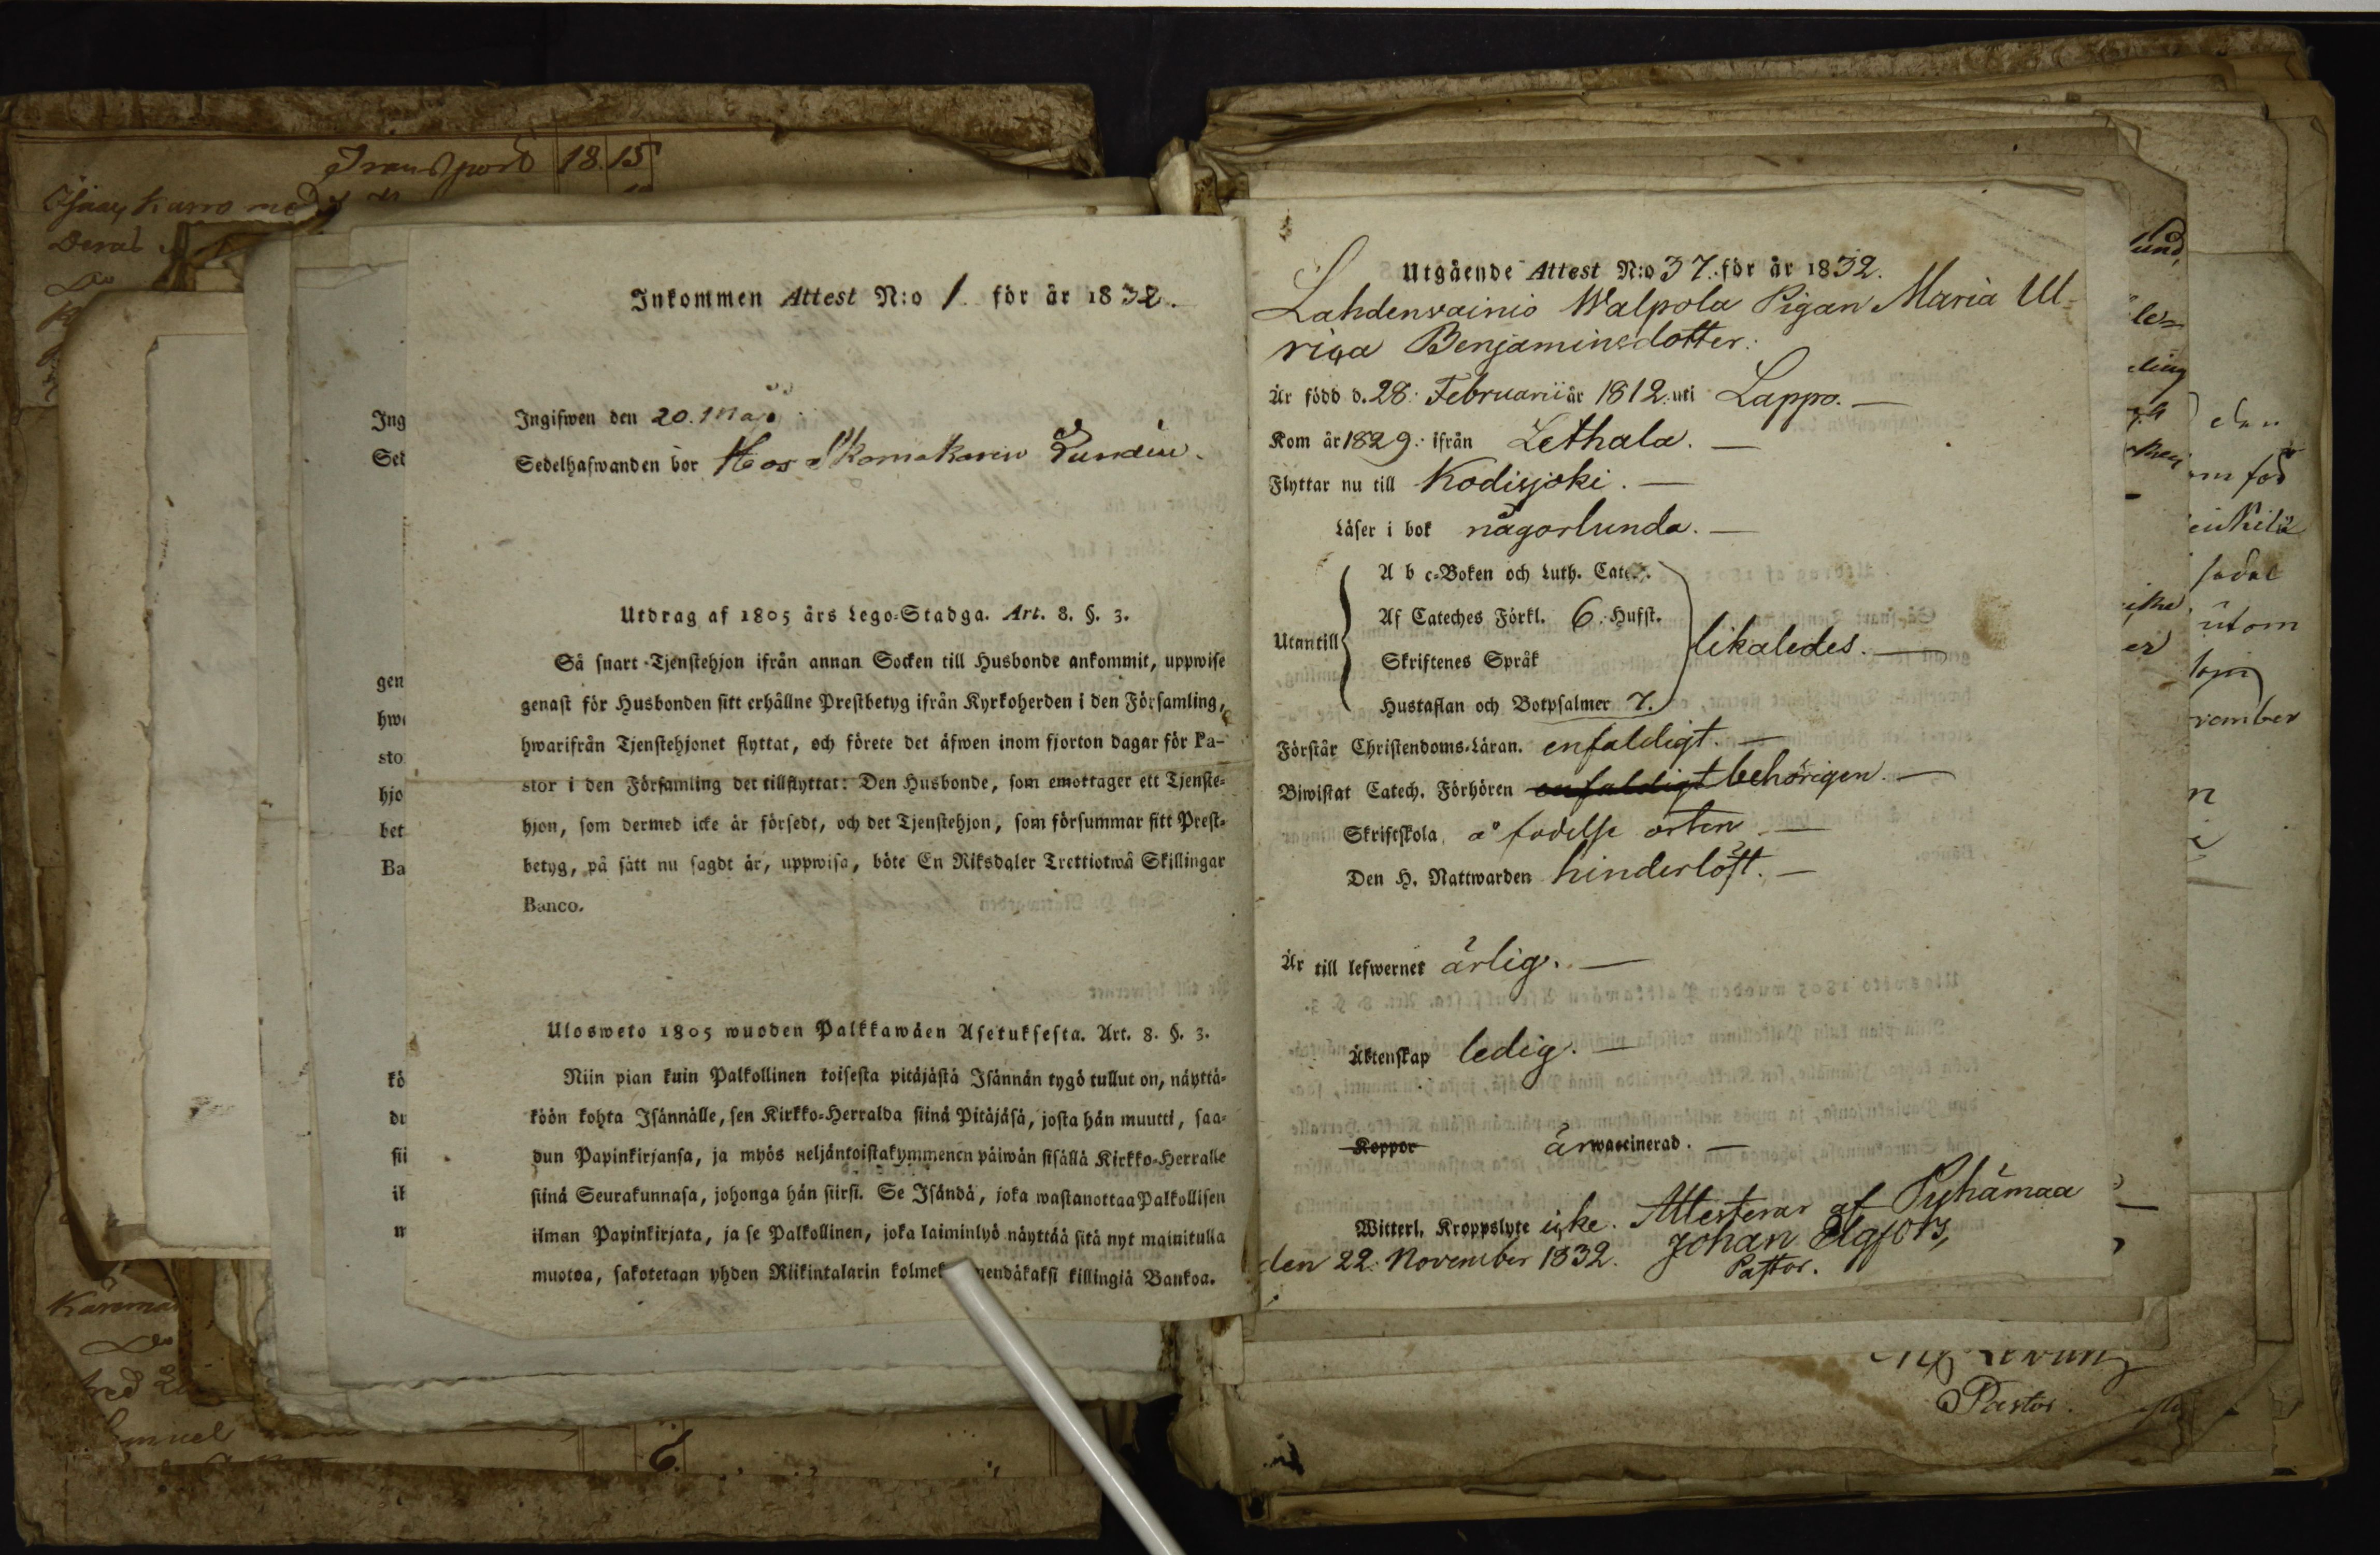 Transport 18 15
Inkommen Attest N:o 1. för år 1832.
Ingifwen den 20. Maji
Sedelhafwanden bor Hos Skomakaren Lundin.
Utdrag af 1805 års Lego-Stadga. Art. 8. §. 3.
Så snart Tjenstehjon ifrån annan Socken till Husbonde ankommit, uppwise
genast för Husbonden sitt erhållne Prestbetyg ifrån Kyrkoherden i den Församling,
hwarifrån Tjenstehjonet flyttat, och förete det äfwen inom fjorton dagar för Pa-
stor i den Församling det tillflyttat: Den Husbonde, som emottager ett Tjenste-
hjon, som dermed icke är försedt, och det Tjenstehjon, som försummar sitt Prest-
betyg, på sätt nu sagdt är, uppwisa, böte En Riksdaler Trettiotwå Skillingar
Banco.
Ulosweto 1805 wuoden Palkkawäen Asetuksesta. Art. 8. §. 3.
Niin pian kuin Palkollinen toisesta pitäjästä Isännän tygö tullut on, näyttä-
köön kohta Isännälle, sen Kirkko-Herralda siinä Pitäjäsä, josta hän muutti, saa-
dun Papinkirjansa, ja myös neljäntoistakymmenen päiwän sisällä Kirkko-Herralle
siinä Seurakunnasa, johonga hän siirsi. Se Isändä, joka wastanottaa Palkollisen
ilman Papinkirjata, ja se Palkollinen, joka laiminlyö näyttää sitä nyt mainitulla
muotoa, sakotetaan yhden Riikintalarin kolmek nendäkaksi killingiä Bankoa.
Ing
Sed
gen
hwa
sto
hjo
bet
Ba
kö
du
sii
il
m
Utgående Attest N:o 37. för år 1832.
Lahdenvainio Walpola Pigan Maria Ul-
rica Benjaminsdotter.
Är född d. 28. Februarii år 1812. uti Lappo. —
Kom år 1829. ifrån Lethala. —
Flyttar nu till Kodisjoki. —
Läser i bok någorlunda. —
A b c-Boken och Luth. Catec.
Af Cateches Förkl. 6. Hufst.
Utantill
Skriftenes Språk
likaledes. —
Hustaflan och Botpsalmer 7.
Förstår Christendoms-Läran. enfaldigt. —
Biwistat Catech. Förhören enfaldigt behörigen. —
Skriftskola, å födelse orten. —
Den H. Nattwarden hinderlöst. —
Är till lefwernet ärlig. —
Äktenskap ledig. —
Koppor är waccinerad. —
Witterl. Kroppslyte icke. Attesterar af Pyhämaa
den 22. November 1832. Johan Elgfors,
Pastor.
Pastor.
6.